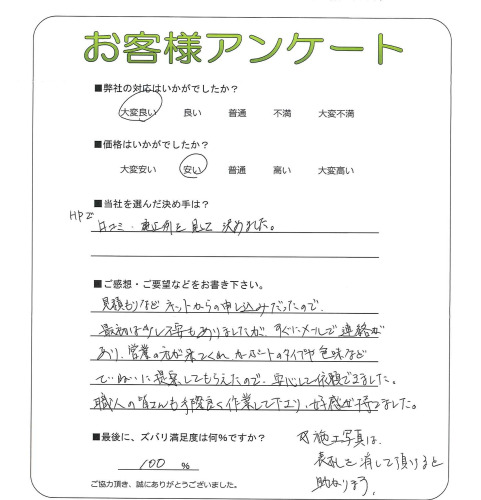 お客様アンケート
■弊社の対応はいかがでしたか？
大変良い 良い 普通 不満 大変不満
■価格はいかがでしたか？
大変安い 安い 普通 高い 大変高い
■当社を選んだ決め手は？
HPで
口コミ・施工例を見て決めました。
■ご感想・ご要望などをお書き下さい。
見積もりなどネットからの申し込みだったので、
最初は少し不安もありましたが、すぐにメールで連絡が
あり、営業の方が来てくれ、カーポートのタイプや色味など
ていねいに提案してもらえたので、安心して依頼できました。
職人の皆さんも手際良く作業して下さり、好感が持てました。
■最後に、ズバリ満足度は何%ですか？
100 %
ご協力頂き、誠にありがとうございました。
施工写真は、
表札を消して頂けると
助かります。